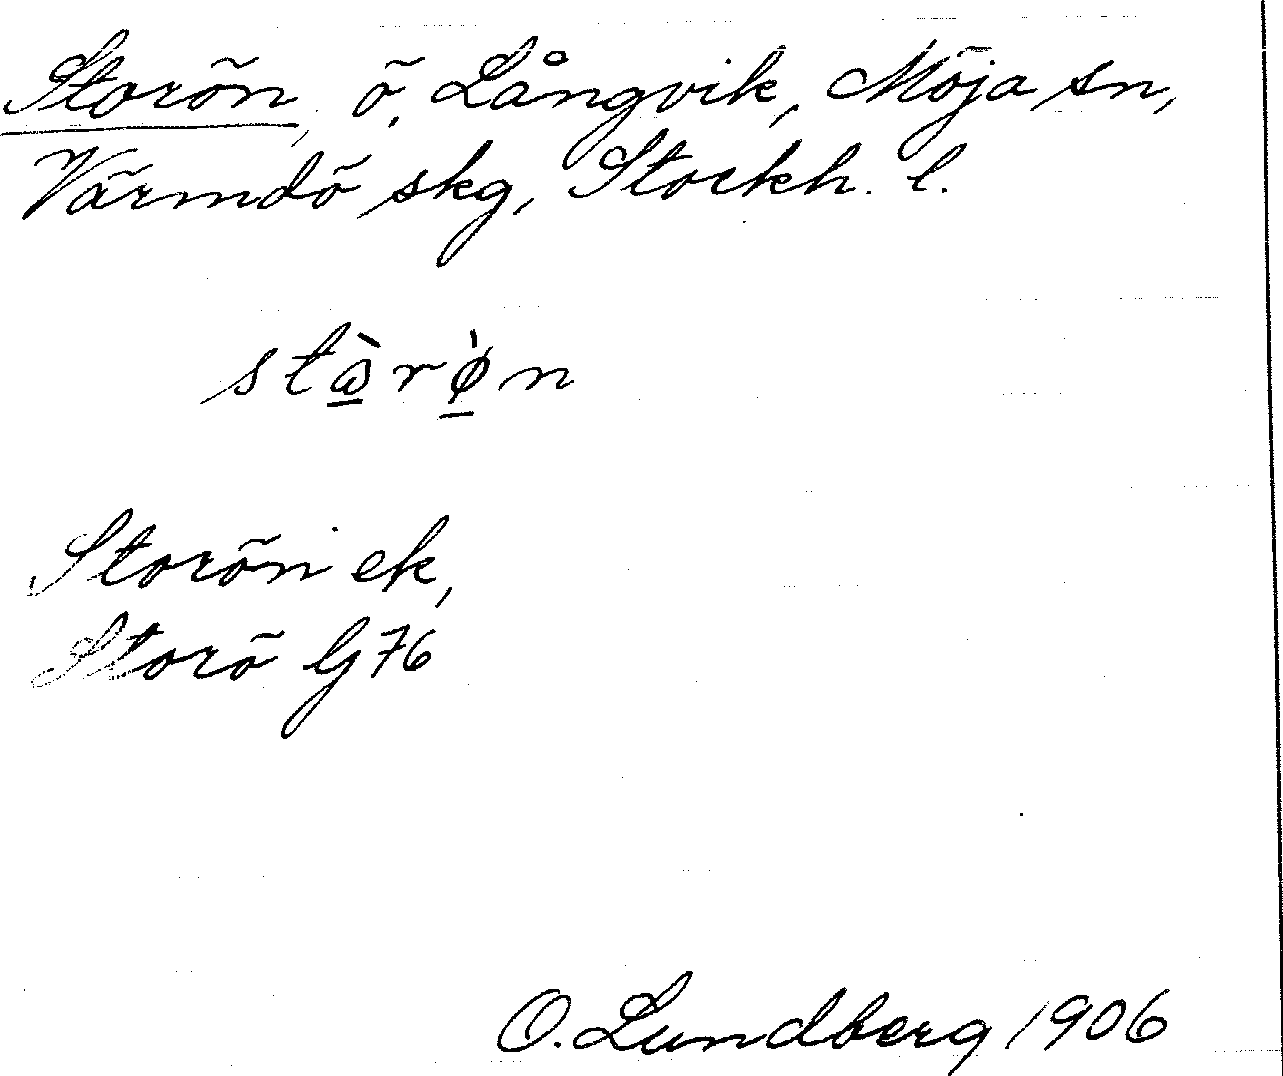 Storön, ö, Långvik, Möja sn,
Värmdö skg, Stockh. l.
stὼ̲rø̲̀n
Storön ek,
Storö G 76
O. Lundberg 1906